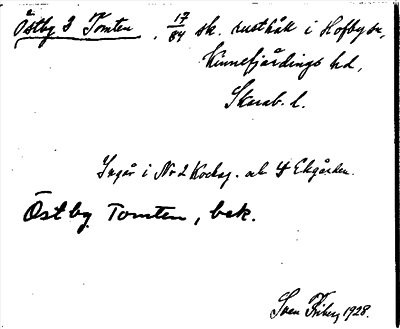 Östby 3 Tomten, 17/84 sk. rusthåll i Hofby sn,
Kinnefjärdings hd,
Skarab. l.
Ingår i Nr 2 Korsg. al. 4 Ekgården.
Östby Tomten, bek.
Sven Friberg 1928.